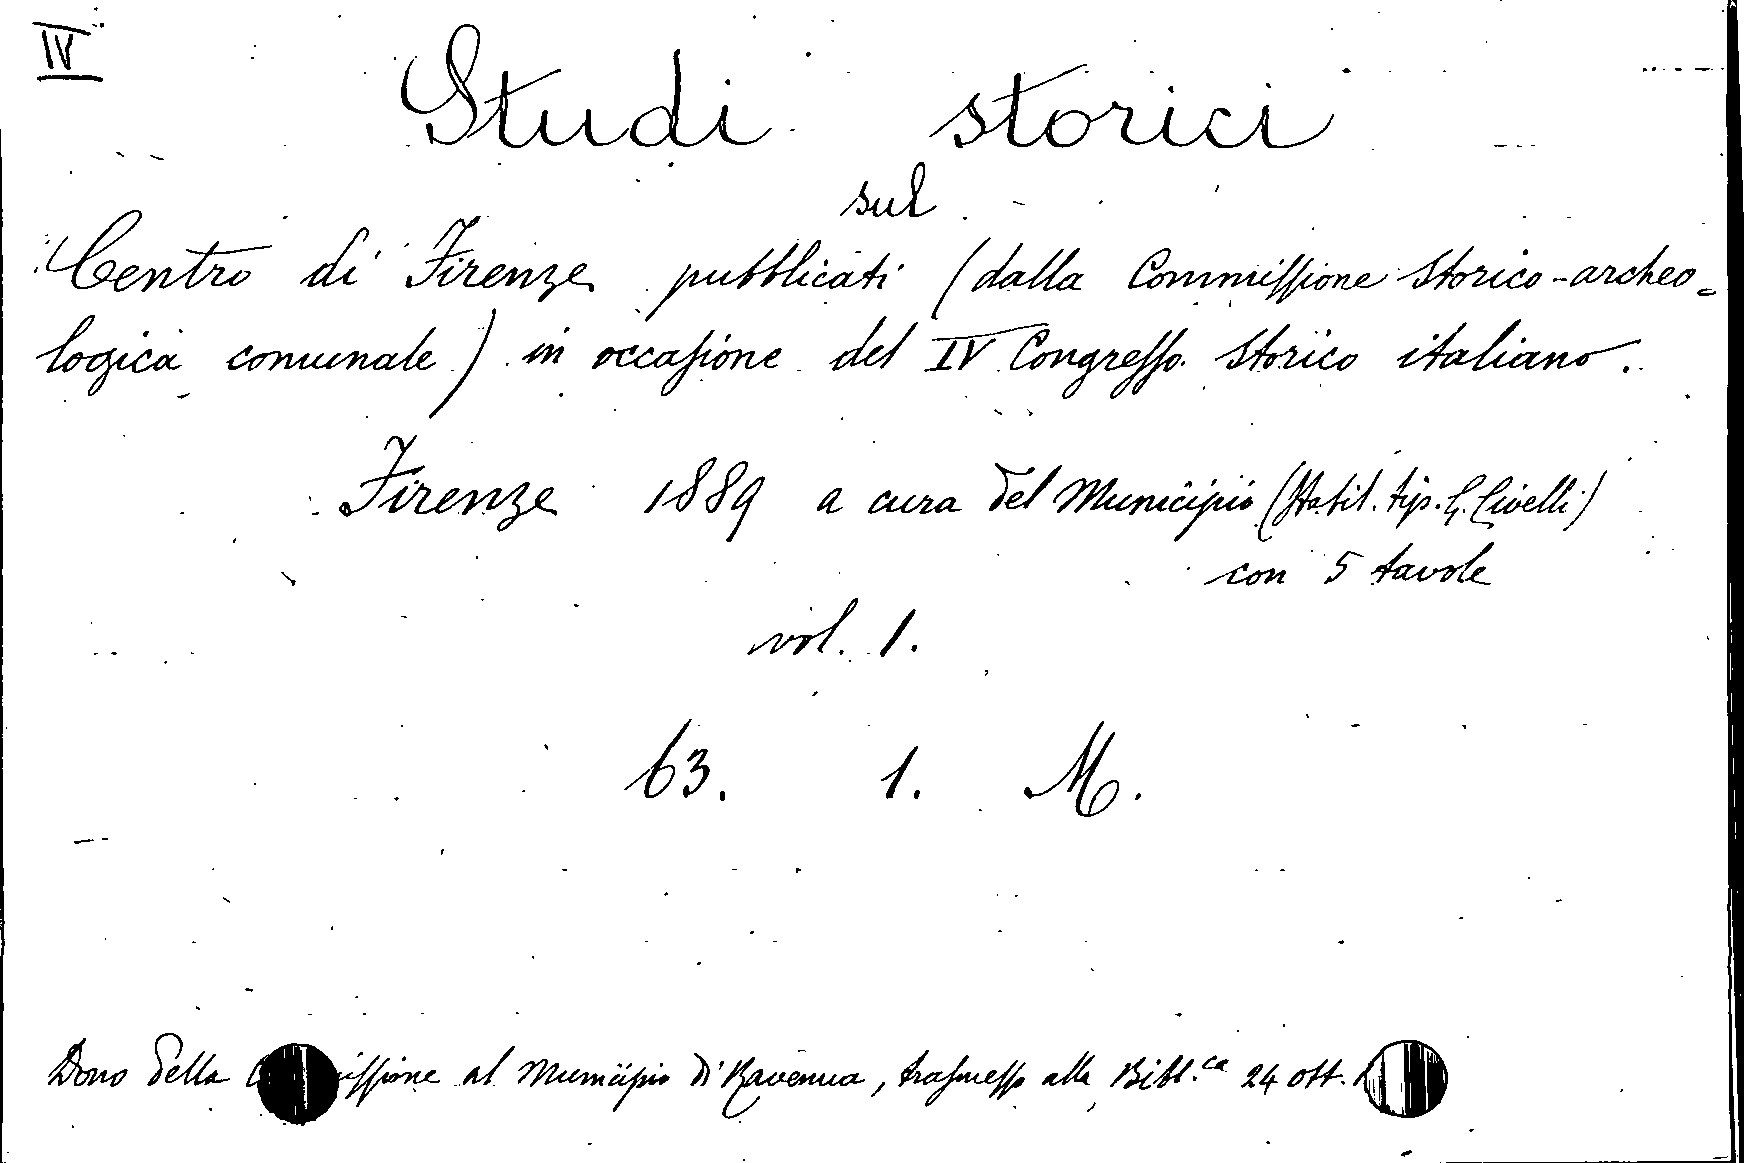 IV
Studi storici
sul
Centro di Firenze pubblicati (dalla Commissione storico-archeo-
logica comunale) in occasione del IV Congresso storico italiano.
Firenze 1889 a cura del Municipio (Stabil. tip. G. Civelli)
con 5 tavole
vol. 1.
63. 1. M.
Dono della issione al Municipio di Ravenna, trasmesso alla Bibl.ca 24 ott.